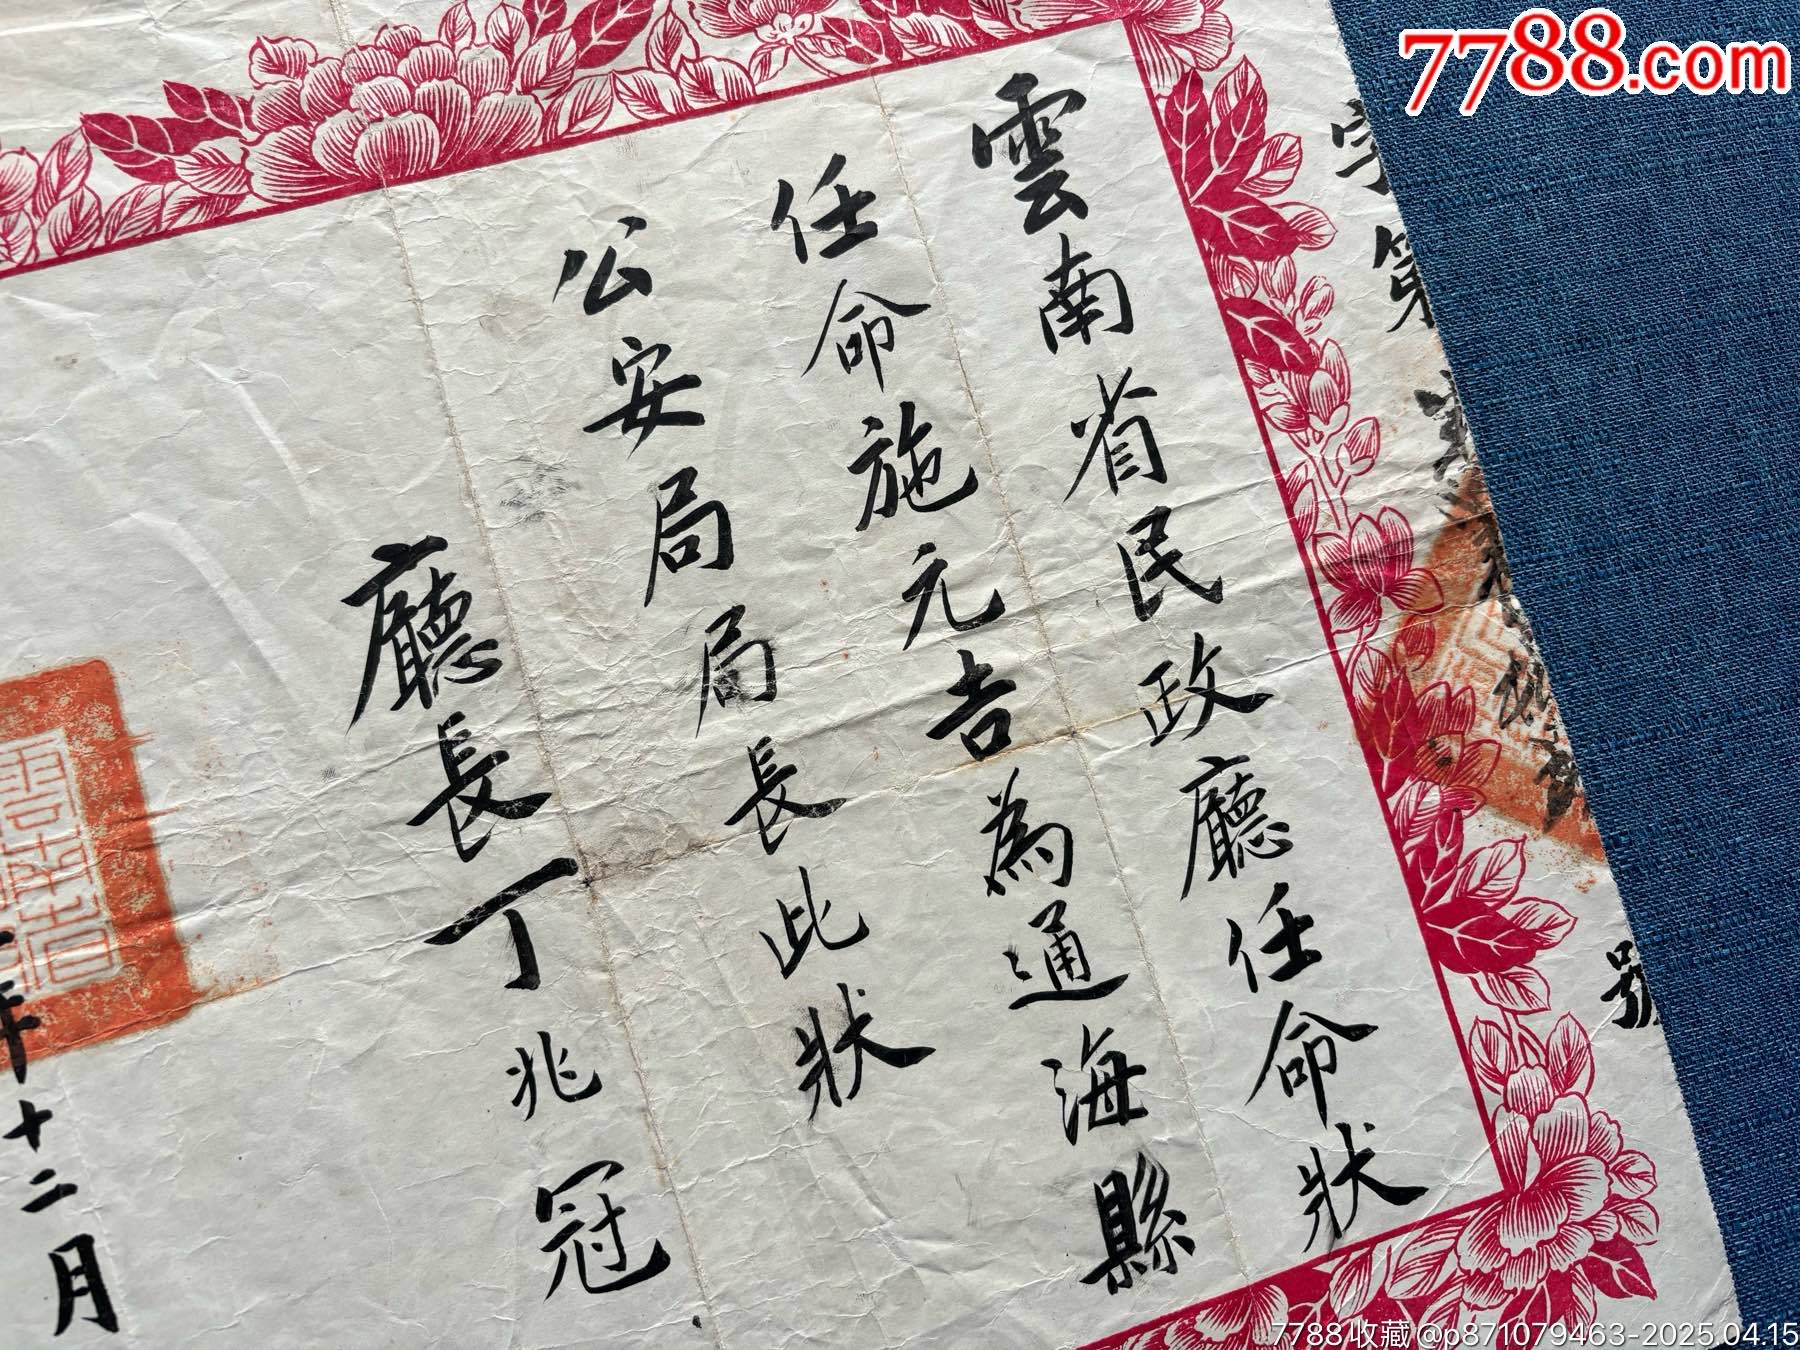 7788.com
字第
號
雲南省民政廳任命狀
任命施元吉為通海縣
公安局局長此狀
廳長丁兆冠
年十二月
7788收藏@p871079463-2025.04.15